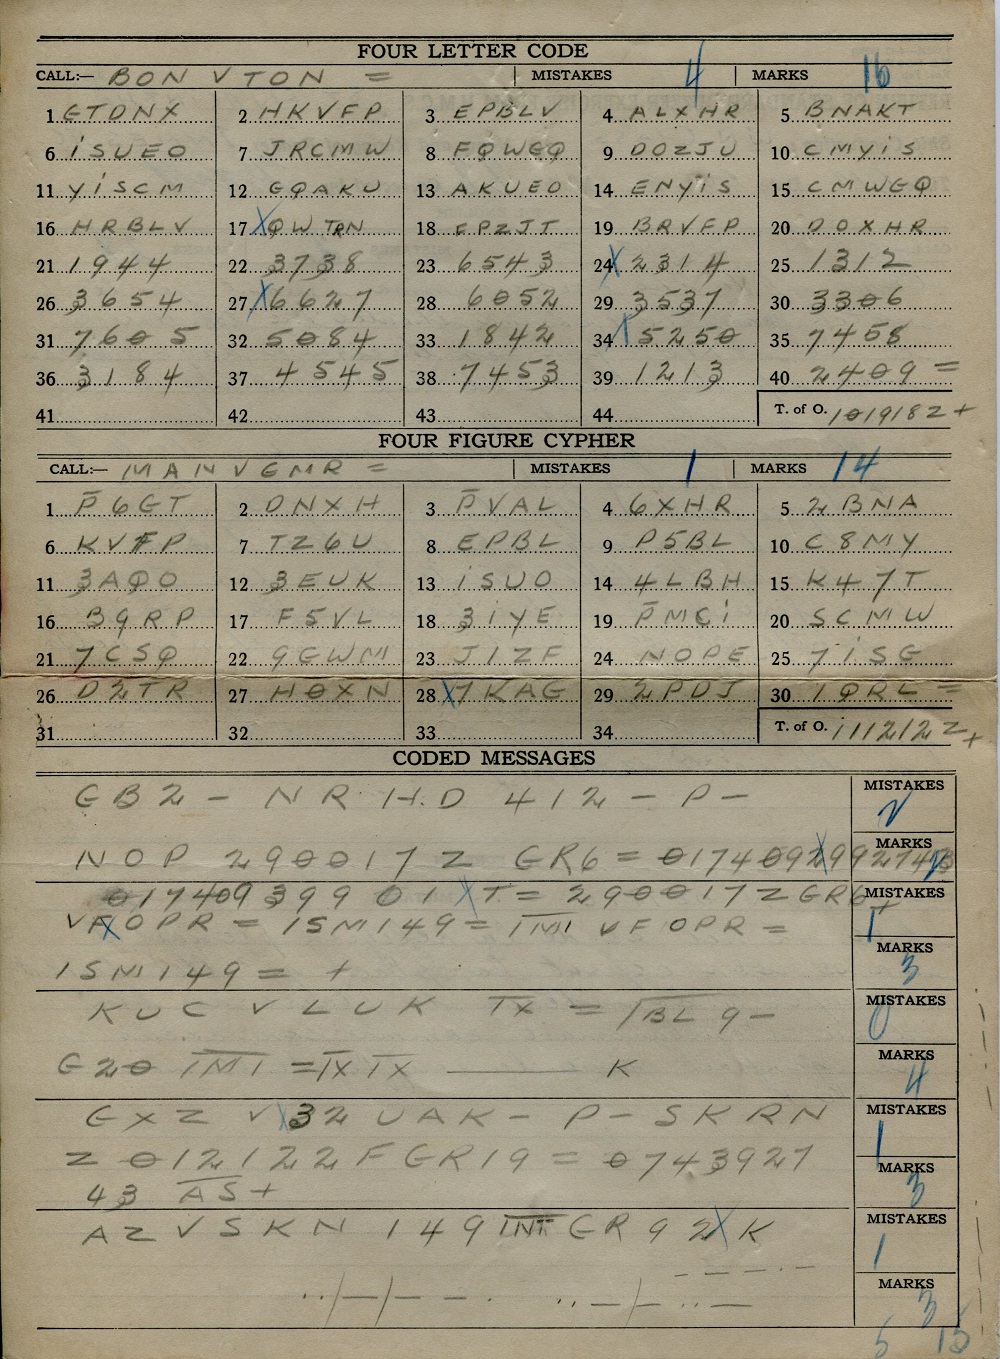 FOUR LETTER CODE
CALL:— BON V TON = MISTAKES 4 MARKS 16
1 GTDNX 2 HKVFP 3 EPBLV 4 ALXHR 5 BNAKT
6 iSUEO 7 JRCMW 8 FQWGQ 9 DOZJU 10 CMYiS
11 YiSCM 12 GQAKU 13 AKUEO 14 ENYiS 15 CMWGQ
16 HRBLV 17 XQWTRN 18 EPZJT 19 BRVFP 20 DOXHR
21 1944 22 3738 23 6543 24 X2314 25 1312
26 3654 27 X6627 28 6052 29 3537 30 3306
31 7605 32 5084 33 1842 34 X5250 35 7458
36 3184 37 4545 38 7453 39 1213 40 2409 =
41 42 43 44 T. of O. 101918Z +
FOUR FIGURE CYPHER
CALL:— MAN V GMR = MISTAKES 1 MARKS 14
1 P̄6GT 2 DNXH 3 P̄VAL 4 6XHR 5 2BNA
6 KVFP 7 TZ6U 8 EPBL 9 P5BL 10 C8MY
11 3AQO 12 3EUK 13 iSUO 14 4LBH 15 K47T
16 B9RP 17 F5VL 18 3iYE 19 P̄MCi 20 SCMW
21 7CSQ 22 9GWM 23 J1ZF 24 NOPE 25 7iSG
26 D2TR 27 H0XN 28 X7KAG 29 2PUJ 30 1QRL =
31 32 33 34 T. of O. 111212Z +
CODED MESSAGES
GB2 - NR H.D 412 - P - MISTAKES 2
NOP 290017Z GR6 = 01740929927 MARKS
017409399 01 X T = 290017Z GR6 + MISTAKES 1
VFXOPR = 1SM149 = IMI VFOPR = MARKS 3
1SM149 = +
KUC V LUK TX = /BL9- MISTAKES 0
G20 IMI = IX IX ——— K MARKS 4
GXZ V X32 UAK - P - SKRN MISTAKES 1
Z 012122F GR19 = 0743927 MARKS 3
43 AS +
AZ V SKN 149 INT GR 92X K MISTAKES 1
MARKS 3
5 15